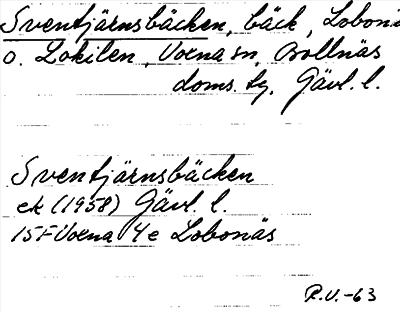 Sventjärnsbäcken, bäck, Lobonä
o. Lokilen, Voxna sn, Bollnäs
doms. tg, Gävl. l.
Sventjärnsbäcken
ek (1958) Gävl. l.
15F Voxna 4e Lobonäs
R.U.-63